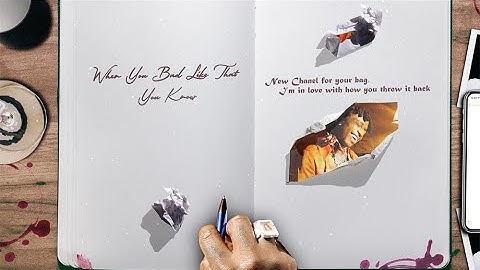 When You Bad Like That
You Know
New Chanel for your bag.
I'm in love with how you throw it back